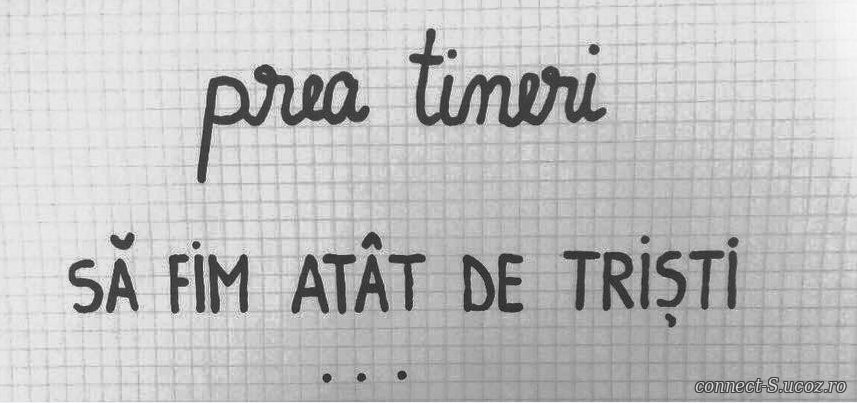 prea tineri
SĂ FİM ATÂT DE TRİȘTİ
...
connect-S.ucoz.ro